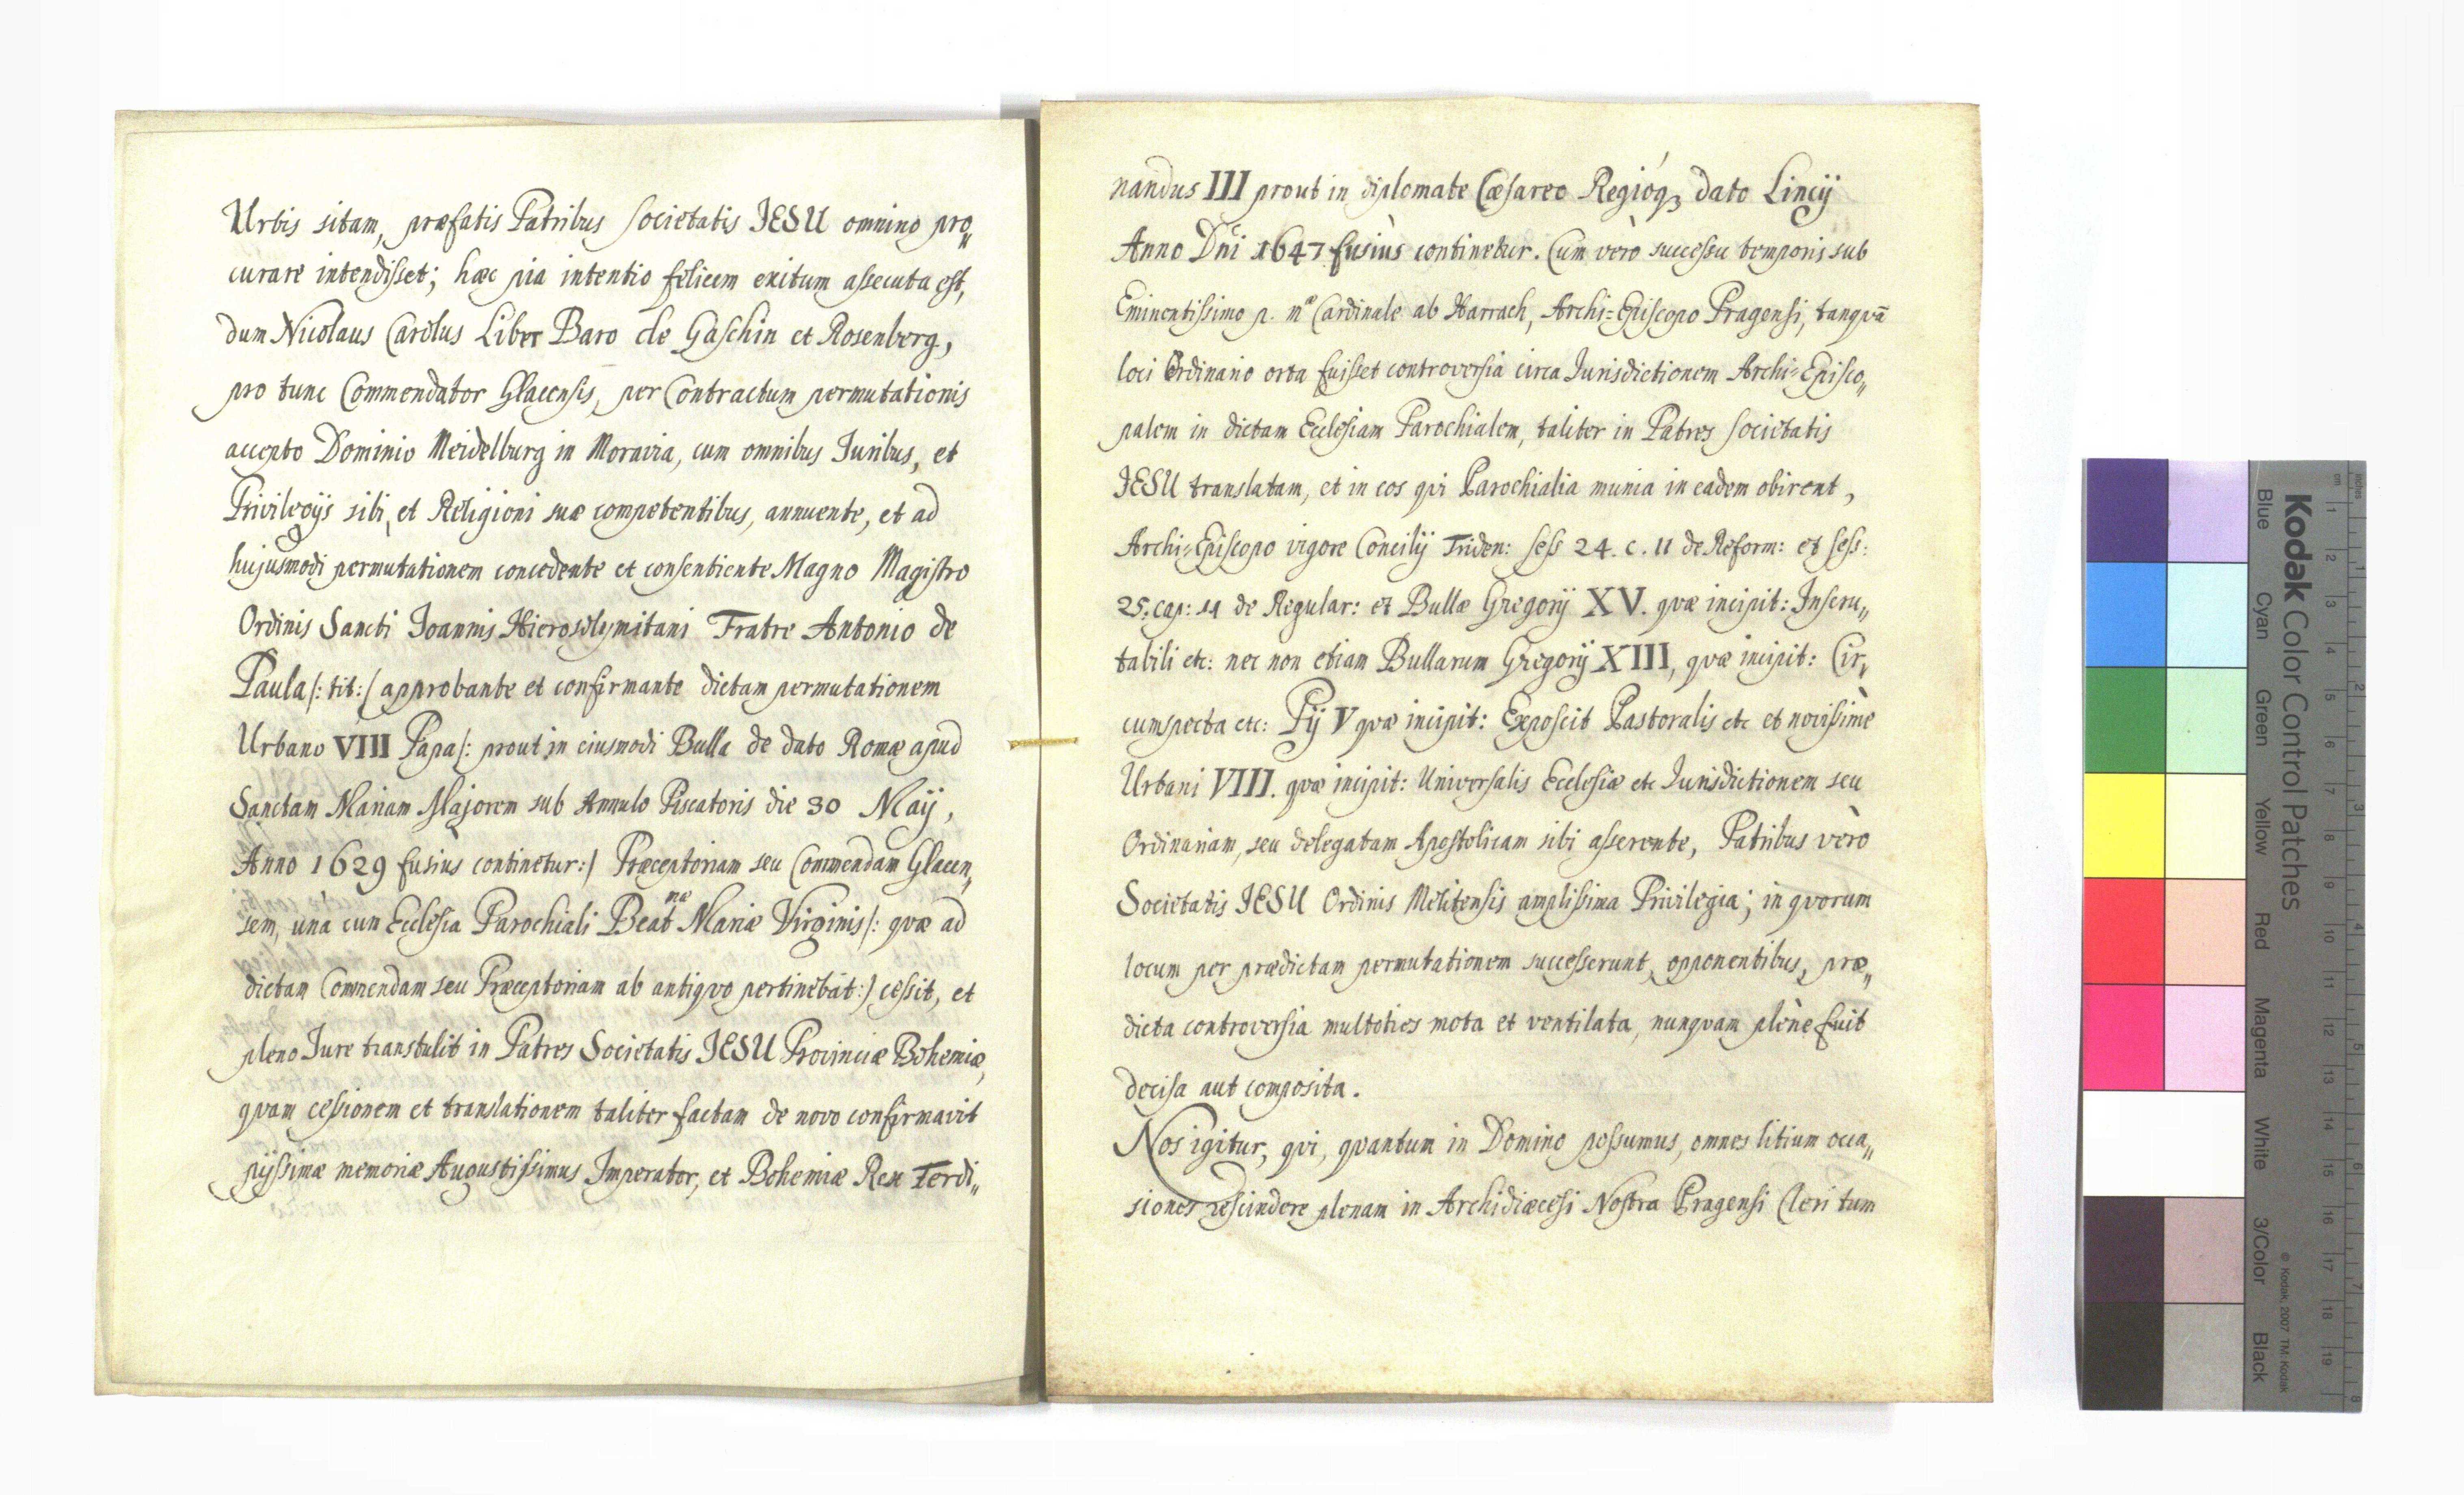 Urbis sitam, præfatis Patribus Societatis JESU omnino pro„
curare intendisset; hæc pia intentio felicem exitum assecuta est,
dum Nicolaus Carolus Liber Baro de Gaschin et Rosenberg,
pro tunc Commendator Glacensis, per Contractum permutationis
accepto Dominio Meidelburg in Moravia, cum omnibus Juribus, et
Privilegijs sibi, et Religioni suæ competentibus, annuente, et ad
hujusmodi permutationem concedente et consentiente Magno Magistro
Ordinis Sancti Joannis Hierosolymitani Fratre Antonio de
Paula /: tit: / approbante et confirmante dictam permutationem
Urbano VIII Papa /: prout in eiusmodi Bulla de dato Romæ apud
Sanctam Mariam Majorem sub Annulo Piscatoris die 30 Maÿ,
Anno 1629 fusiùs continetur: / Præceptoriam seu Commendam Glacen„
sem, unà cum Ecclesia Parochiali Beatmæ Mariæ Virginis /: quæ ad
dictam Commendam seu Præceptoriam ab antiquo pertinebat: / cessit, et
pleno Jure transtulit in Patres Societatis JESU Provinciæ Bohemiæ,
quam cessionem et translationem taliter factam de novo confirmavit
pijssimæ memoriæ Augustissimus Imperator, et Bohemiæ Rex Ferdi„
nandus III prout in diplomate Cæsareo Regióq3 dato Lincij
Anno Dni 1647 fusiùs continetur. Cum verò successu temporis sub
Eminentissimo p. mæ Cardinale ab Harrach, Archi=Episcopo Pragensi, tanquã
loci Ordinario orta fuisset controversia circa Jurisdictionem Archi=Episco„
palem in dictam Ecclesiam Parochialem, taliter in Patres Societatis
JESU translatam, et in eos qui Parochialia munia in eadem obirent,
Archi=Episcopo vigore Concilij Triden: sess 24. c. 11 de Reform: et sess:
25. cap: 11 de Regular: et Bullæ Gregorij XV. quæ incipit: Inscru„
tabili etc: nec non etiam Bullarum Gregorij XIII, quæ incipit: Cir„
cumspecta etc: Pij V quæ incipit: Exposcit Pastoralis etc et novissimè
Urbani VIII. quæ incipit: Universalis Ecclesiæ etc Jurisdictionem seu
Ordinariam, seu delegatam Apostolicam sibi asserente, Patribus verò
Societatis JESU Ordinis Melitensis amplissima Privilegia; in quorum
locum per prædictam permutationem successerunt, opponentibus, præ„
dicta controversia multoties mota et ventilata, nunquam plenè fuit
decisa aut composita.
Nos igitur, qui, quantum in Domino possumus, omnes litium occa„
siones rescindere plenam in Archidiæcesi Nostra Pragensi Cleri tum
Kodak Color Control Patches
Blue Cyan Green Yellow Red Magenta White 3/Color Black
© Kodak, 2007 TM: Kodak
inches 1 2 3 4 5 6 7 8
cm 1 2 3 4 5 6 7 8 9 10 11 12 13 14 15 16 17 18 19